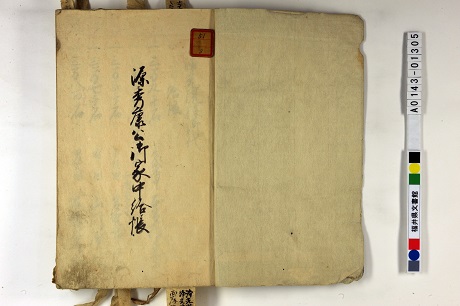 源秀康公御家中給帳
A0143-01305
福井県文書館